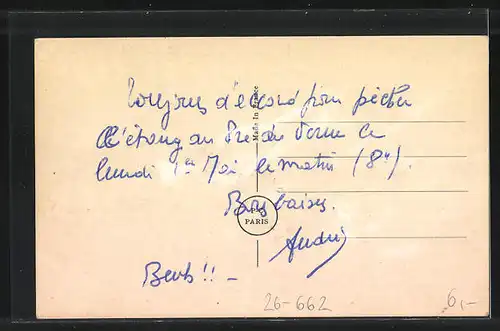 Toujours d'accord pour pêcher
l'étang au Pré du Verne le
lundi 1er Mai le matin (8h).
Bons baisers.
André
Made in France
PARIS
26-662
6,-